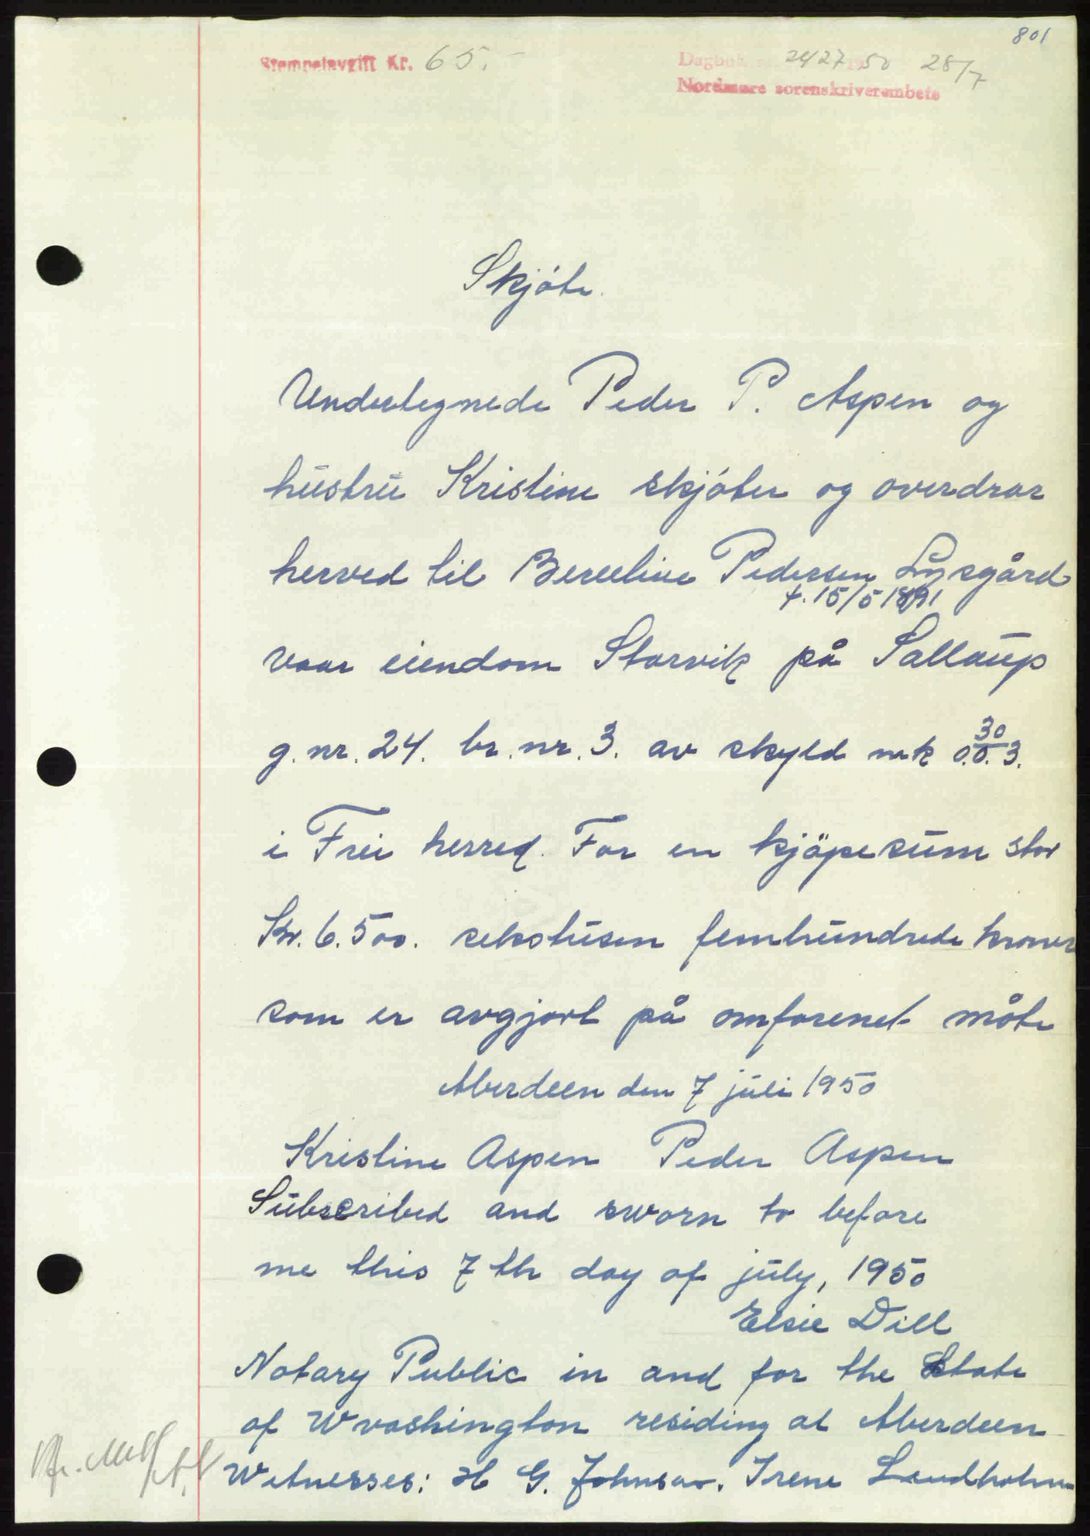 801
Stempelavgift Kr. 65.-
Dagbok 2427 1950 28/7
Nordmøre sorenskriverembete
Skjöte.
Undertegnede Peder P. Aspen og
hustru Kristine skjöter og overdrar
herved til Bereeline Pedersen Lysgård
f. 15/5 1891
vaar eiendom Storvik på Sallaup
g. nr. 24. br. nr. 3. av skyld mrk 0.0.3.
30
i Frei herred. For en kjöpesum stor
Kr. 6.500. sekstusen femhundrede kroner
som er avgjort på omforenet måte
Aberdeen den 7 juli 1950
Kristine Aspen Peder Aspen
Subscribed and sworn to before
me this 7 th day of july, 1950
Elsie Dill
Notary Public in and for the State
of Wwashington residing at Aberdeen
Witnesses: H G. Johnson. Irene Landholm